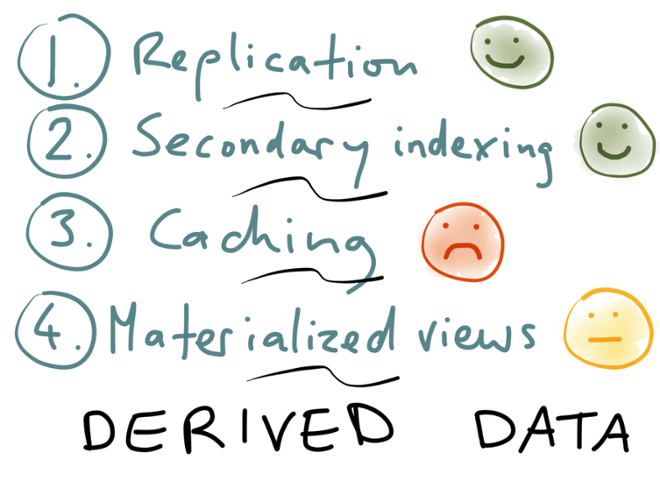 1. Replication
2. Secondary indexing
3. Caching
4. Materialized views
DERIVED DATA